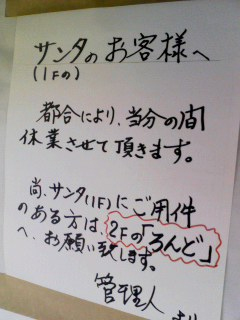 サンタのお客様へ
(1Fの)
都合により、当分の間
休業させて頂きます。
尚、サンタ(1F)にご用件
のある方は、2Fの「ろんど」
へ、お願い致します。
管理人